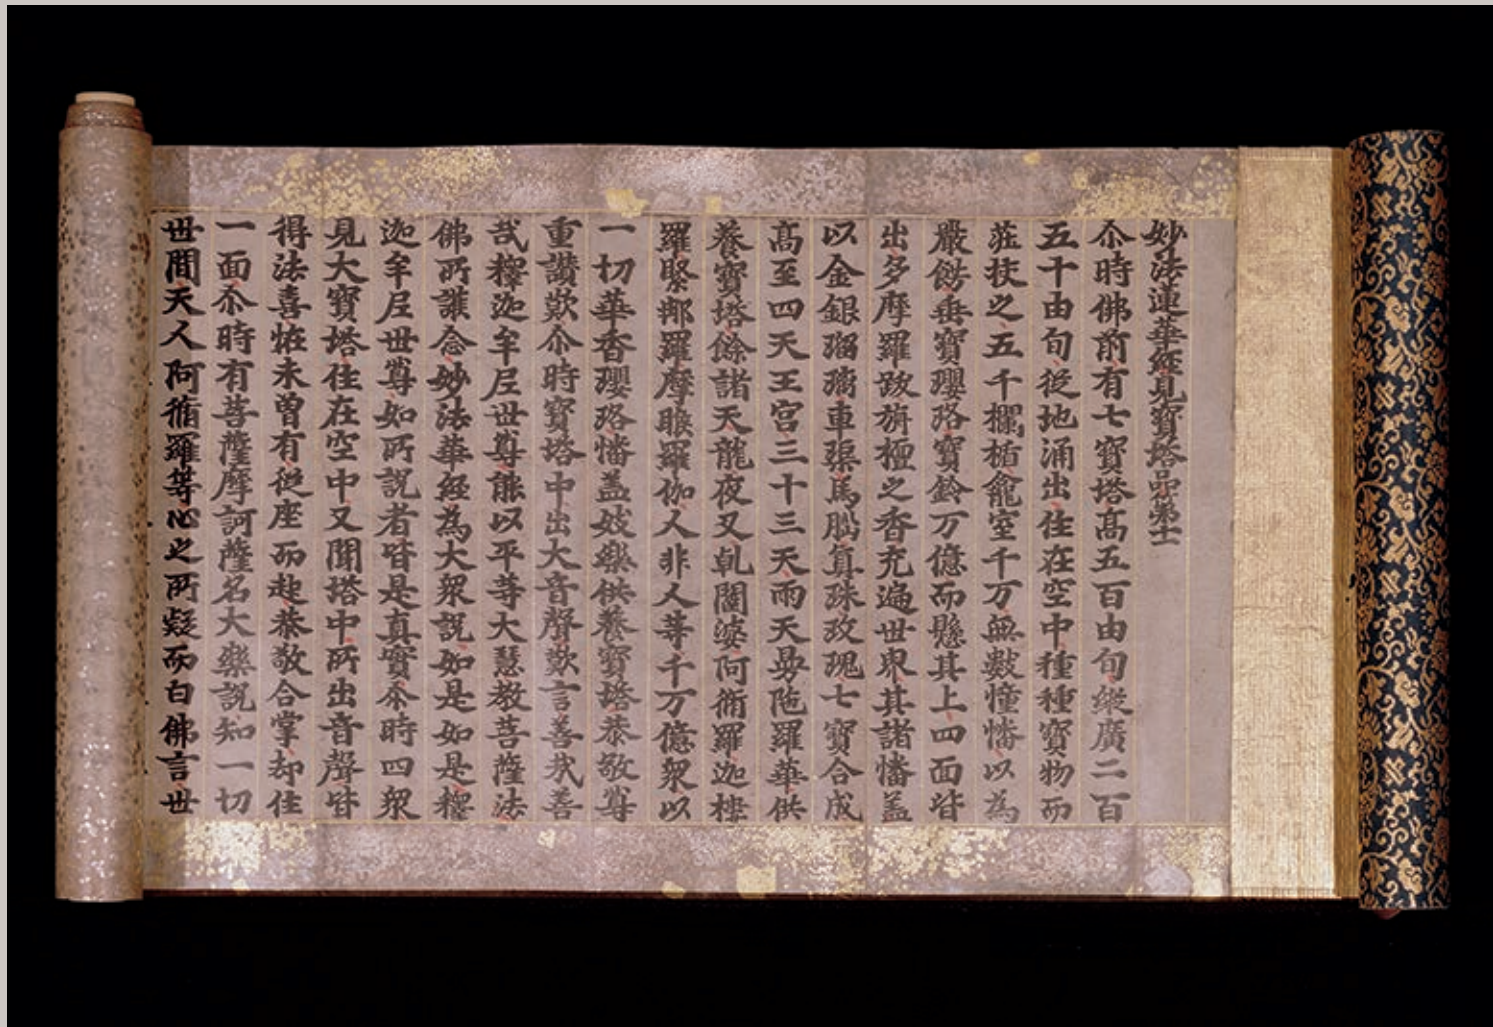 妙法蓮華經見寶塔品第十一
尒時佛前有七寶塔高五百由旬縱廣二百
五十由旬從地涌出住在空中種種寶物而
莊挍之五千欄楯龕室千万無數幢幡以為
嚴餝垂寶瓔珞寶鈴万億而懸其上四面皆
出多摩羅跋旃檀之香充遍世界其諸幡盖
以金銀瑠璃車璖馬瑙真珠玫瑰七寶合成
高至四天王宮三十三天雨天曼陁羅華供
養寶塔餘諸天龍夜叉乹闥婆阿脩羅迦樓
羅緊那羅摩睺羅伽人非人等千万億衆以
一切華香瓔珞幡盖妓樂供養寶塔恭敬尊
重讚歎尒時寶塔中出大音聲歎言善哉善
哉釋迦牟尼世尊能以平等大慧教菩薩法
佛所護念妙法華經為大衆說如是如是釋
迦牟尼世尊如所說者皆是真實尒時四衆
見大寶塔住在空中又聞塔中所出音聲皆
得法喜恠未曾有從座而起恭敬合掌却住
一面尒時有菩薩摩訶薩名大樂說知一切
世間天人阿脩羅等心之所疑而白佛言世